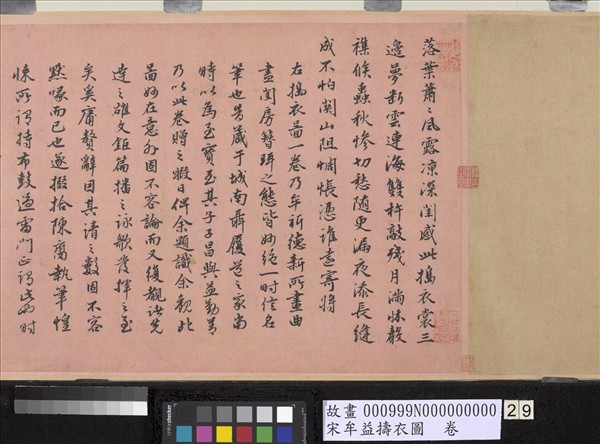 落葉蕭〻風露凉深閨感此搗衣裳三
邊夢斷雲連海雙杵敲殘月滿牀聲
襍候蟲秋慘切愁隨更漏夜添長縫
成不怕関山阻惆悵憑誰遠寄將
右搗衣圖一卷乃牟祈德新所畫曲
盡閨房簪珥之態皆妙絕一時信名
筆也昔藏于城南聶履道之家當
時以為至寶至其子子昌與益勤善
乃以此卷贈之暇日俾余題識余觀此
圖妙在意外固不容論而又復觀諸先
達之雄文鉅篇播之詠歌發揮之至
矣奚庸贅辭因其請之數固不容
默喙而已也遂掇拾陳腐執筆惶
悚所謂持布鼓過雷門正謂此也時
故畫 000999N000000000 29
宋牟益擣衣圖 卷